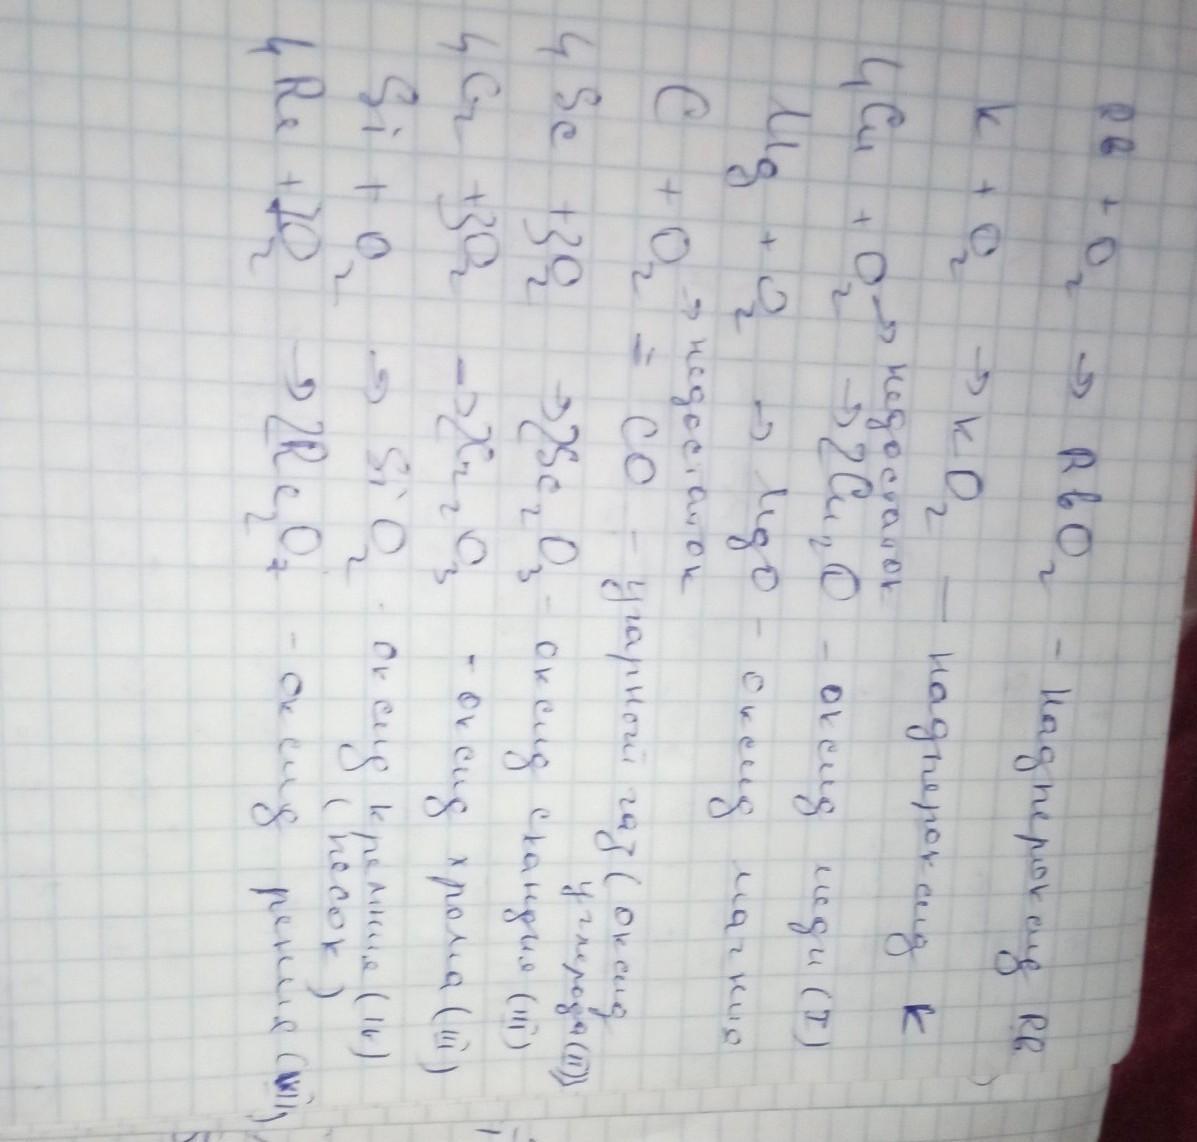 Rb + O₂ → RbO₂ - надпероксид Rb
K + O₂ → KO₂ — надпероксид K
4Cu + O₂ → недостаток
→ 2Cu₂O - оксид меди (I)
Mg + O₂ → MgO - оксид магния
C + O₂ → недостаток
= CO - угарный газ (оксид
углерода (II))
4Sc + 3O₂ → 2Sc₂O₃ - оксид скандия (III)
4Cr + 3O₂ → 2Cr₂O₃ - оксид хрома (III)
Si + O₂ → SiO₂ - оксид кремния (IV)
(песок)
4Re + 7O₂ → 2Re₂O₇ - оксид рения (VII)